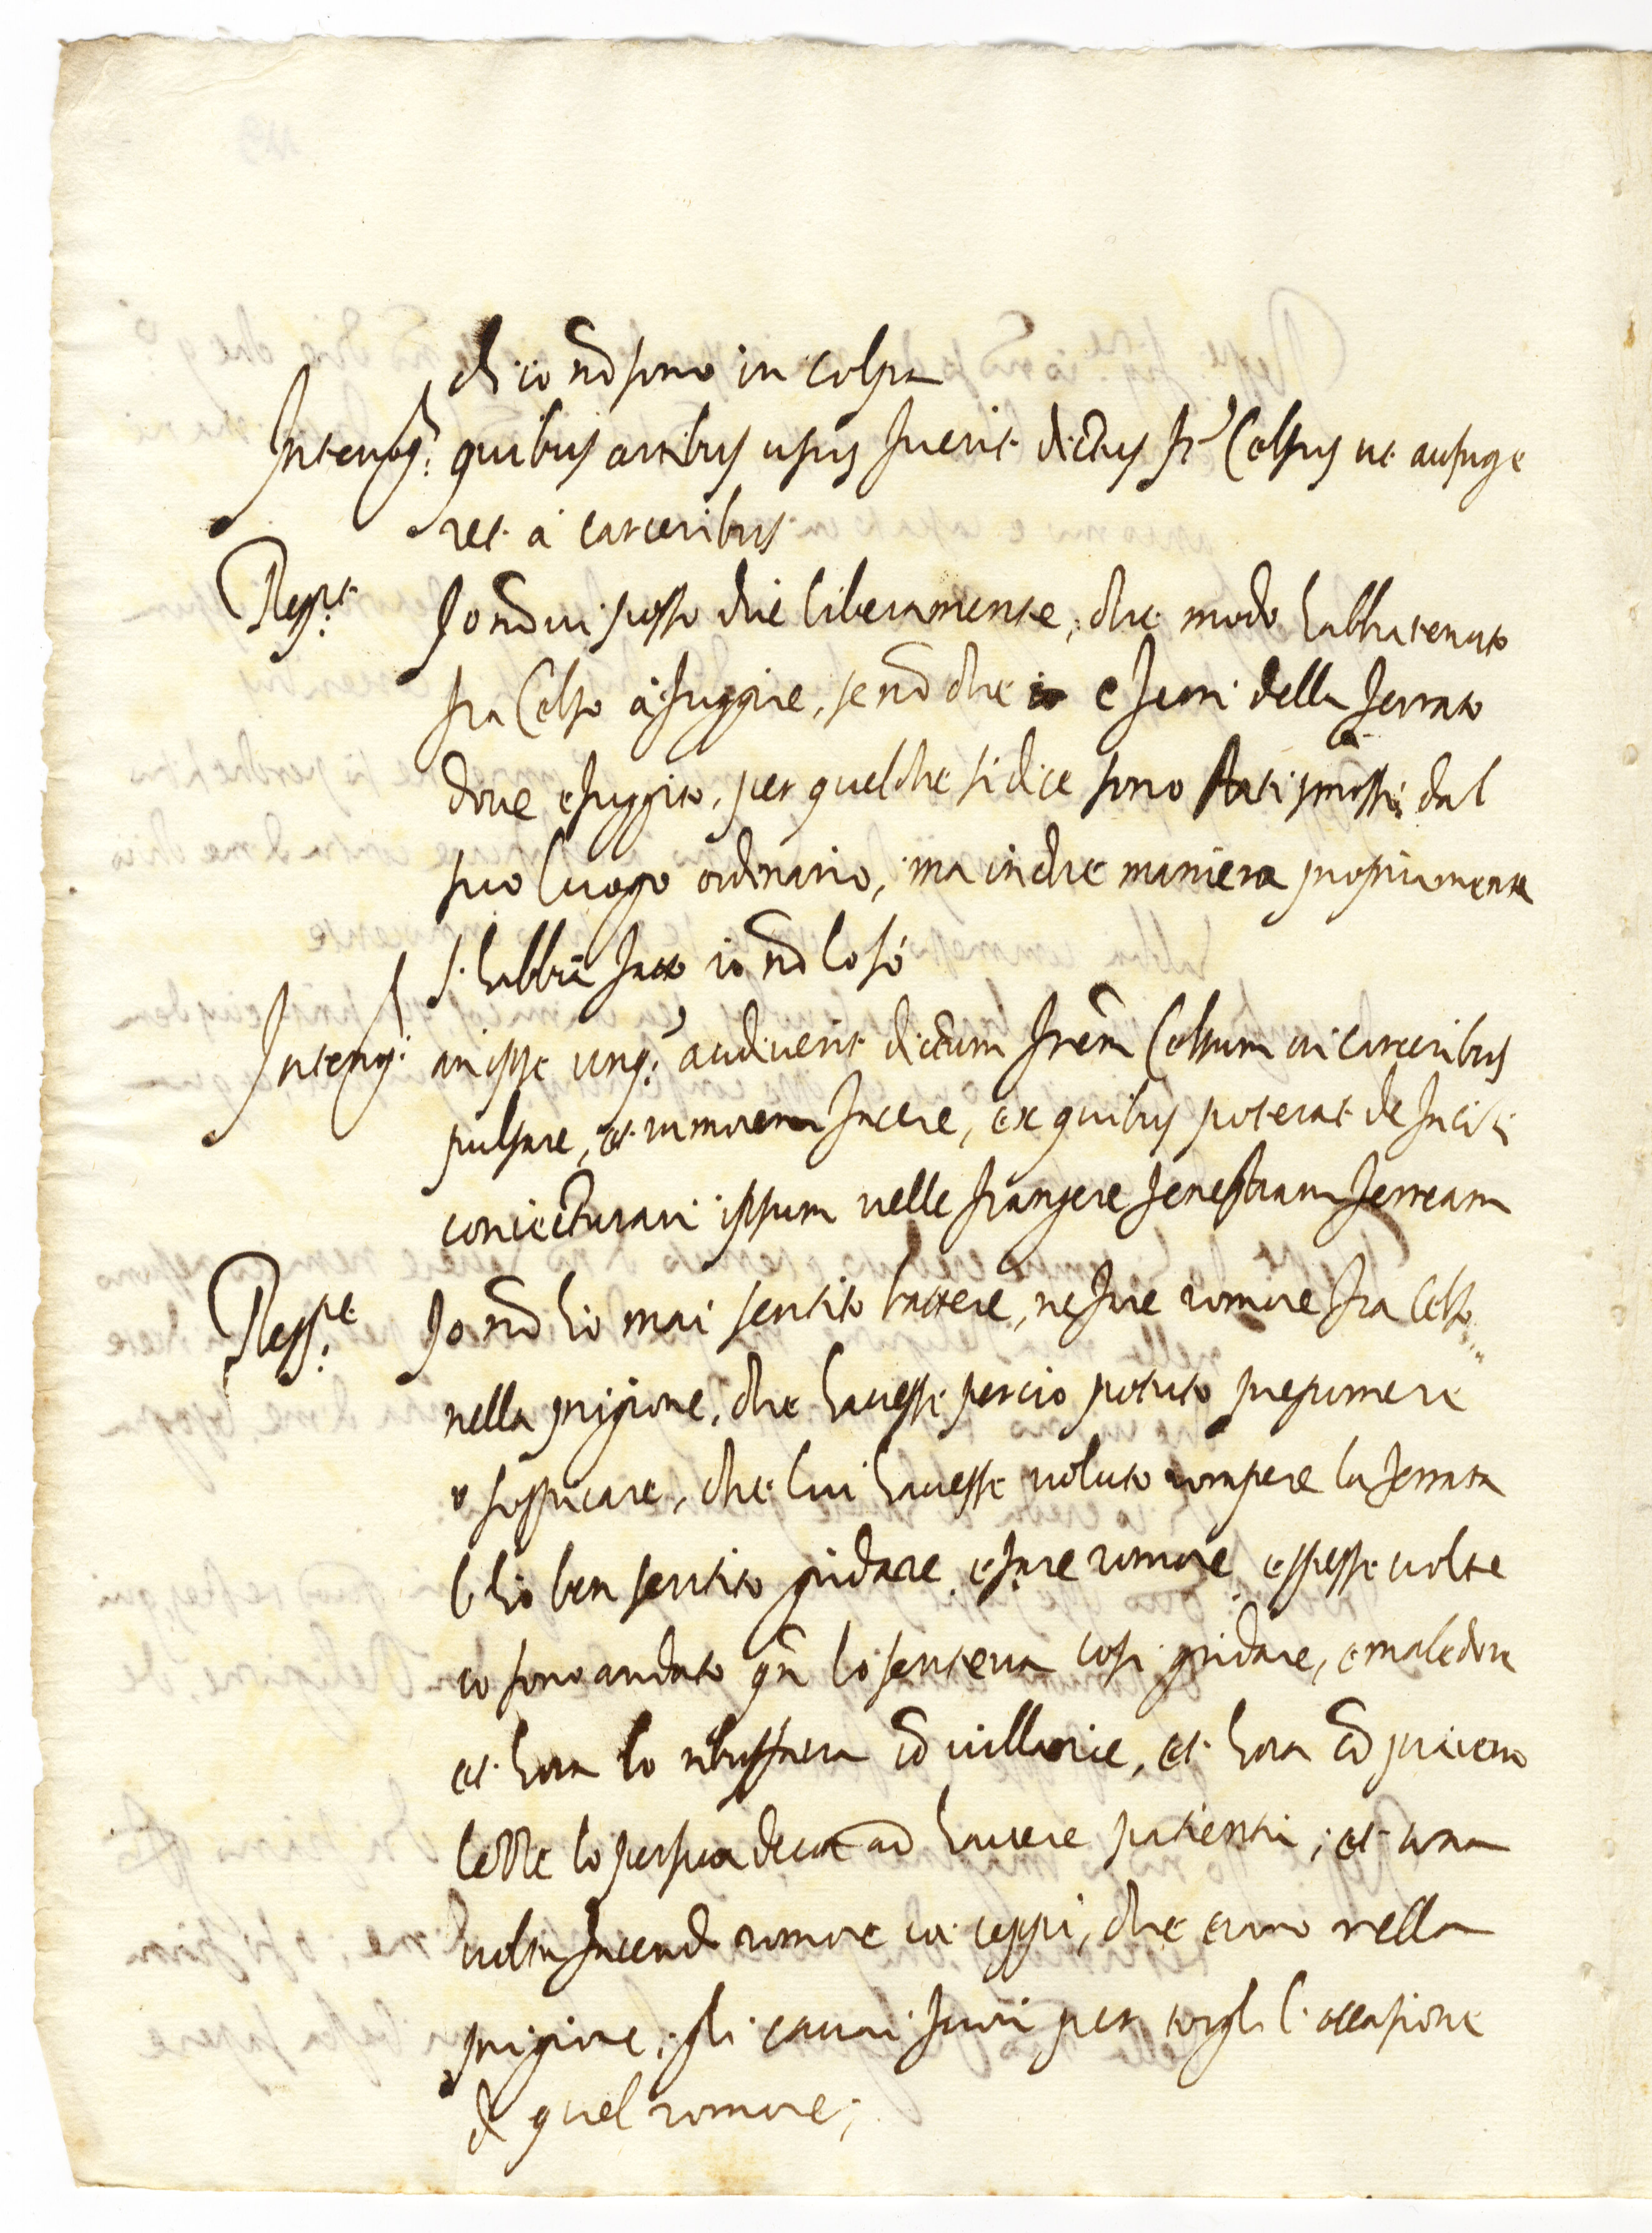 ch'io nõ sono in colpa
Interrog: quibus artibus usus fuerit dictus fr Celsus ut aufuge
ret à carceribus
Resp.t Io nõ vi posso dire liberamente, che modo habbia tenuto
fra Celso à fuggire, se nõ che e ferri della ferrata
dove e fuggito, per quel che si dice sono stati smossi dal
suo luogo ordinario, ma in che maniera propriamente
s'habbia fatto io nõ lo só
Interrog: an ipse unq: audiverit dictum frem Celsum in carceribus
pulsare, et rumorem facere, ex quibus poterat de facili
coniecturari ipsum velle frangere fenestram ferream
Resp.e Io nõ hò mai sentito battere, ne fare romore fra Celso
nella prigione, che havesse percio potuto presumere
o sospicare, che lui havesse voluto rompere la ferrata
l'hò ben sentito gridare e fare romore e spesse volte
io sono andato qn lo senteva cosi gridare, e maledire
et hora lo ributtava cõ villanie, et hora cõ piacevo
lezze lo persuadeva ad havere patientia; et una
volta facendo romore co i ceppi, che erano nella
prigione, gli cavai fuori per torgli l'occasione
di quel romore;